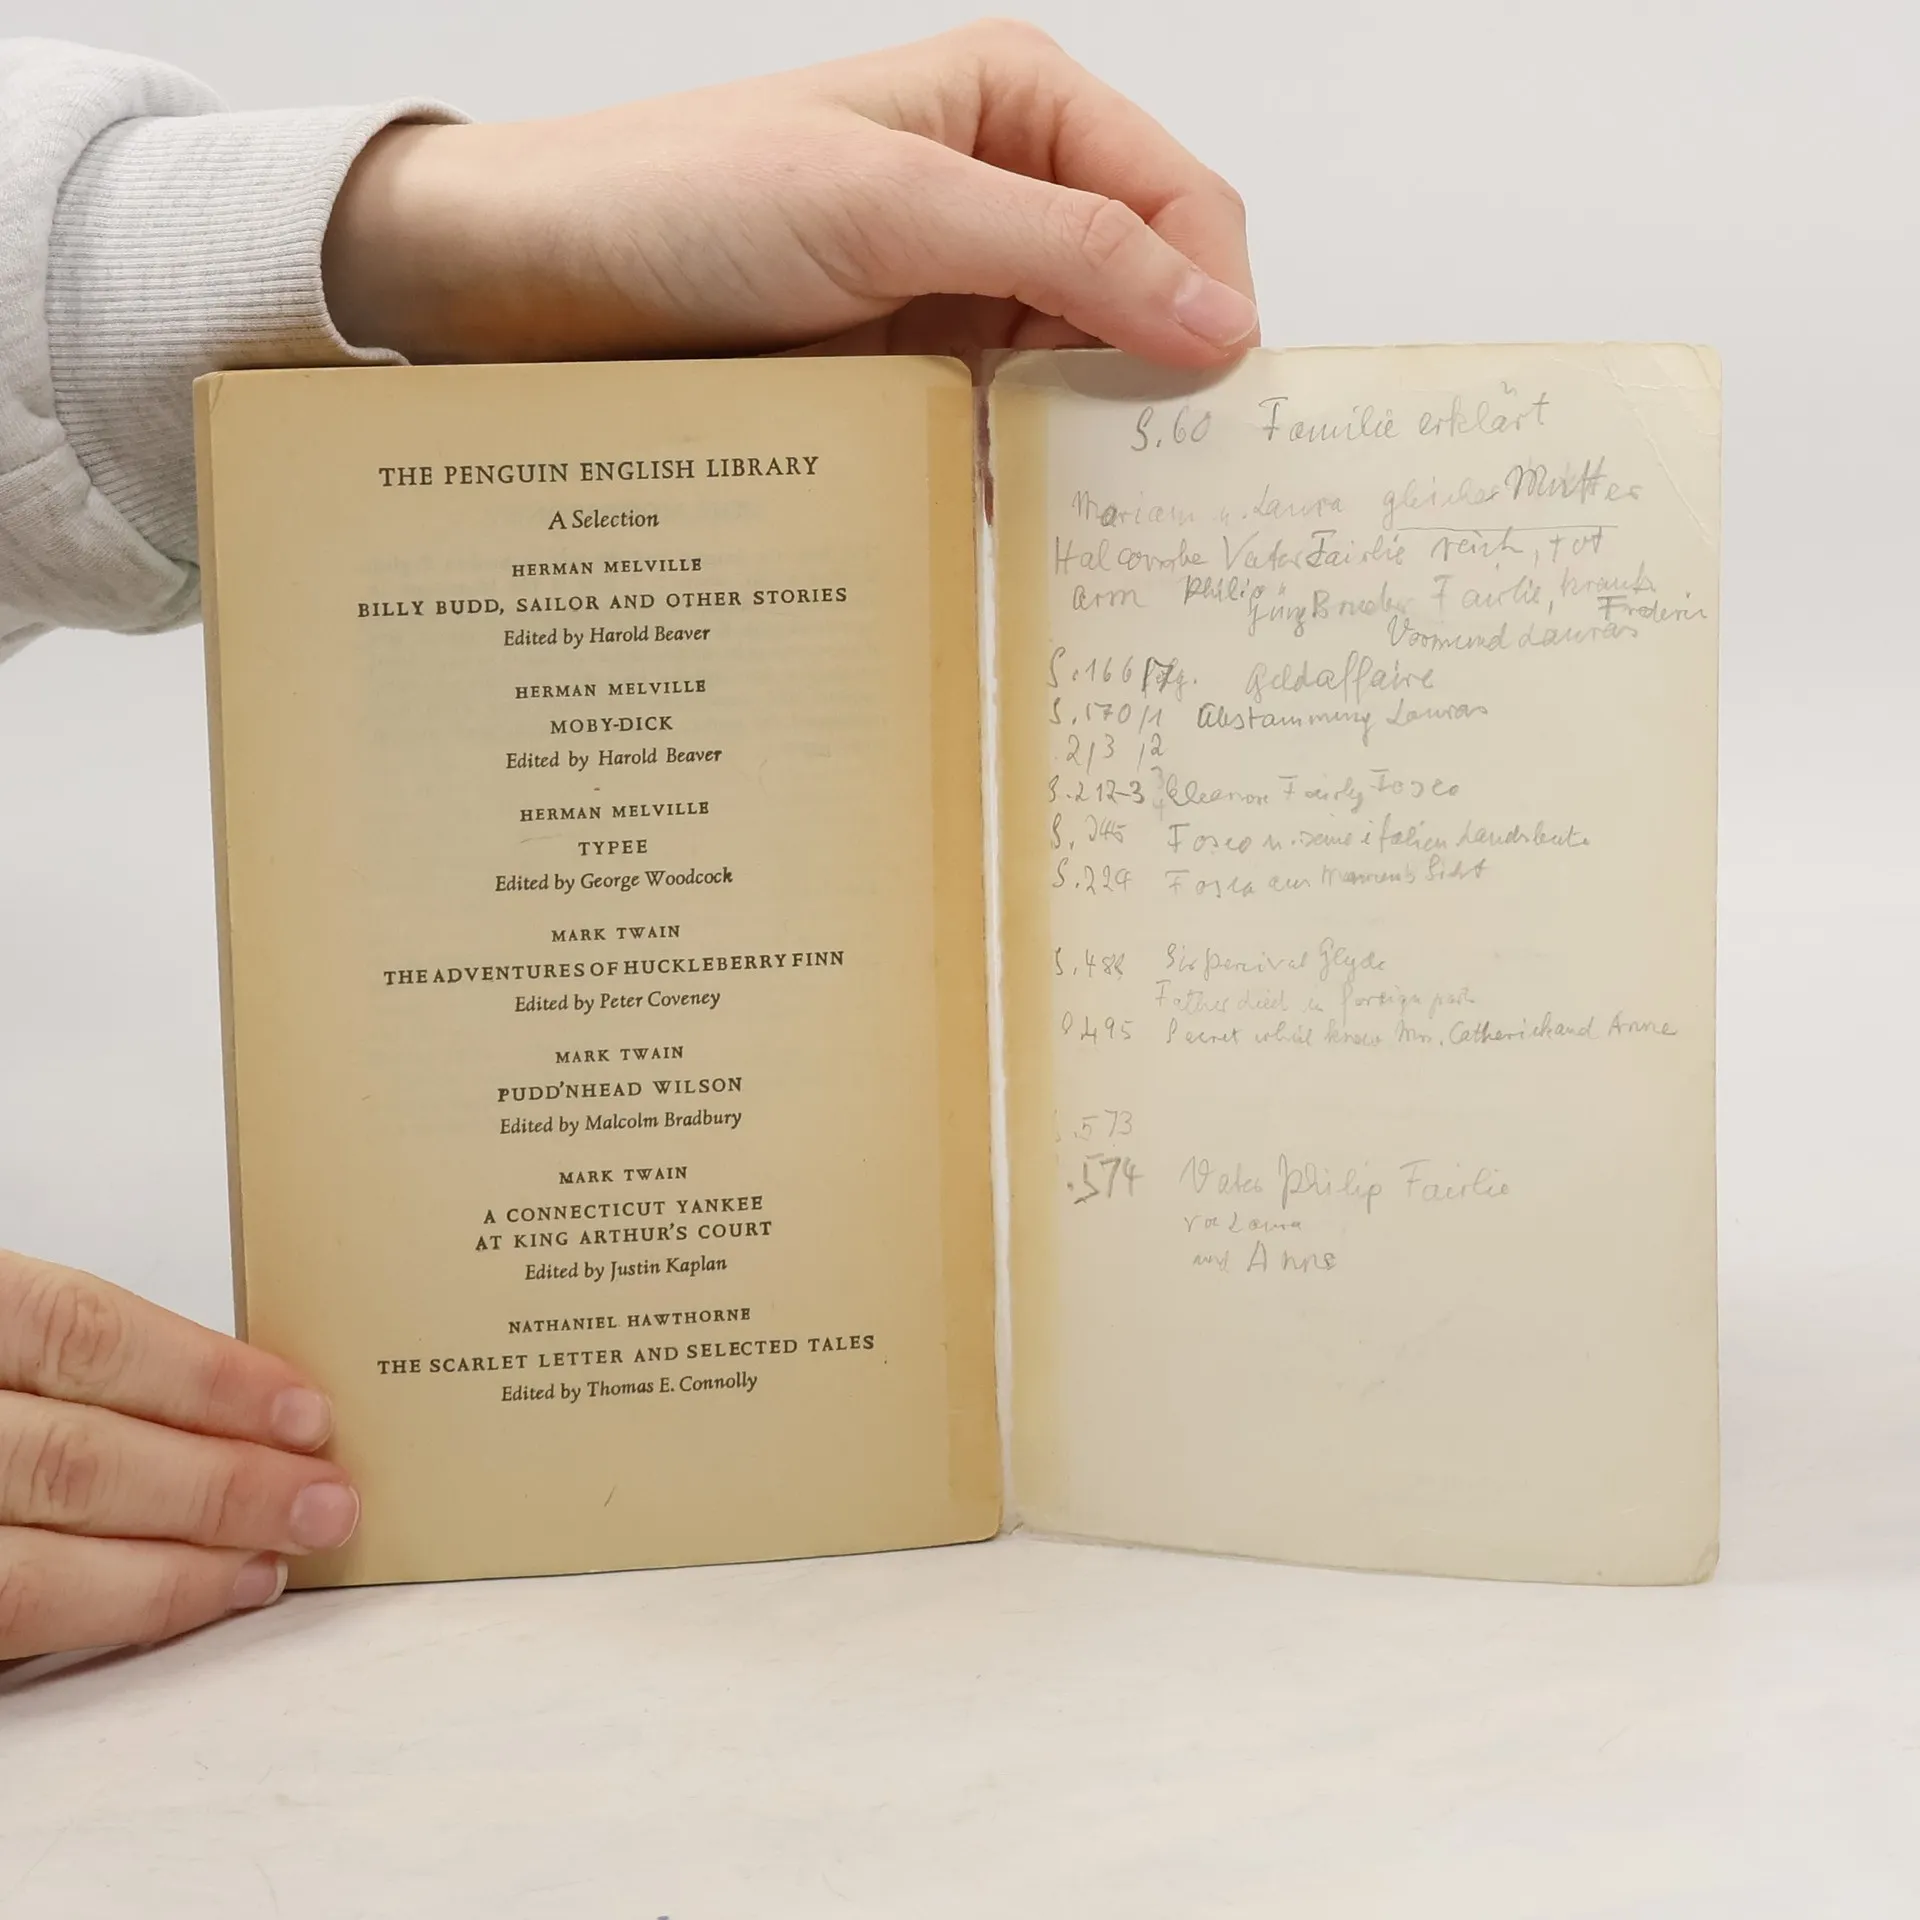 THE PENGUIN ENGLISH LIBRARY
A Selection
HERMAN MELVILLE
BILLY BUDD, SAILOR AND OTHER STORIES
Edited by Harold Beaver
HERMAN MELVILLE
MOBY-DICK
Edited by Harold Beaver
HERMAN MELVILLE
TYPEE
Edited by George Woodcock
MARK TWAIN
THE ADVENTURES OF HUCKLEBERRY FINN
Edited by Peter Coveney
MARK TWAIN
PUDD'NHEAD WILSON
Edited by Malcolm Bradbury
MARK TWAIN
A CONNECTICUT YANKEE
AT KING ARTHUR'S COURT
Edited by Justin Kaplan
NATHANIEL HAWTHORNE
THE SCARLET LETTER AND SELECTED TALES
Edited by Thomas E. Connolly
S. 60 Familie erklärt
Mariam u. Laura gleicher Mutter
Halcombe Vater Fairlie reich, tot
arm Philip Bruder Fairlie, krank
Frederic
Vormund Lauras
S. 166 Geldaffaire
S. 170/1 Abstammung Lauras
2/3 /2
S. 212-3 Eleanore Fairly Fosco
S. 245 Fosco u. seine italien Landsleute
S. 224 Fosco aus Sicht
S. 488 Sir Percival Glyde
Father died in foreign part
S. 495 Secret which know Mrs. Catherick and Anne
.573
.574 Vater Philip Fairlie
von Laura
und Anne